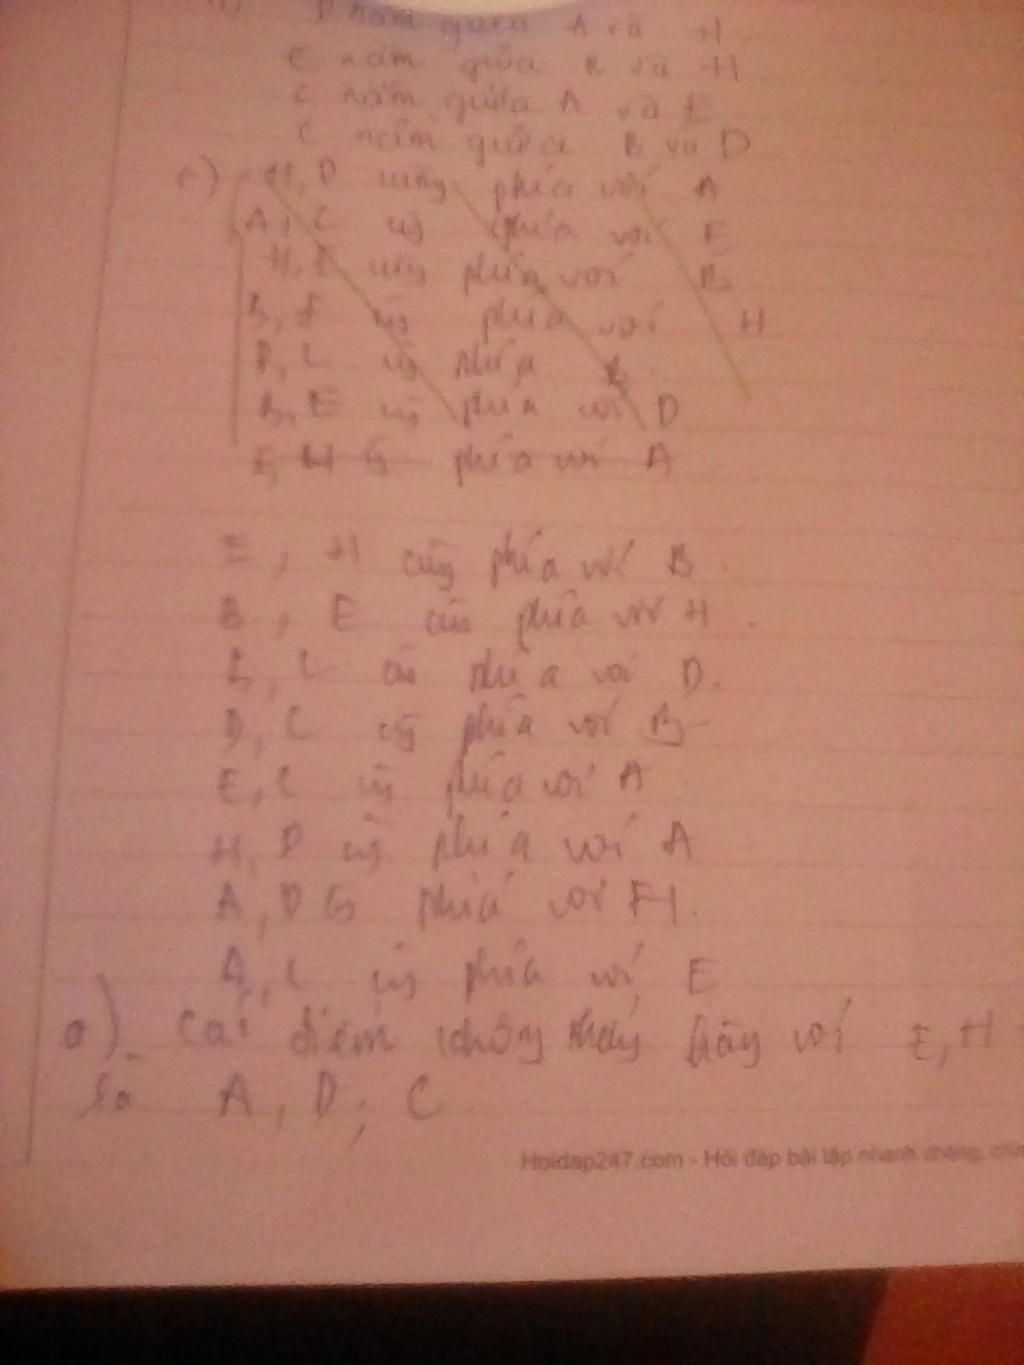 D nằm giữa A và H
E nằm giữa B và H
C nằm giữa A và E
C nằm giữa B và D
c) H, D cùng phía với A
A, C cùg phía với E
H, E cùng phía với B
B, E cùg phía với H
D, C cùg phía B
B, E cùg phía với D
E, H phía với A
E, H cùng phía với B.
B, E phía với H.
C phía với D.
D, C cùg phía với B
E, C cùg phía với A
H, D cùg phía với A
A, D phía với H.
A, C cùg phía với E
a). Cái điểm không thẳng hàng với E, H
là A, D, C
Hoidap247.com - Hỏi đáp bài tập nhanh chóng,